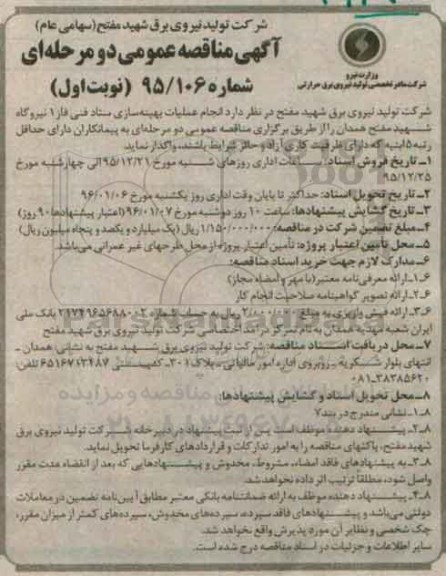 شرکت تولید نیروی برق شهید مفتح (سهامی عام)
آگهی مناقصه عمومی دو مرحله‌ای
شماره ۹۵/۱۰۶ (نوبت اول)
وزارت نیرو
شرکت مادر تخصصی تولید نیروی برق حرارتی
شرکت تولید نیروی برق شهید مفتح در نظر دارد انجام عملیات بهینه‌سازی ستاد فنی فاز ۱ نیروگاه
شهید مفتح همدان را از طریق برگزاری مناقصه عمومی دو مرحله‌ای به پیمانکاران دارای حداقل
رتبه ۵ ابنیه که دارای ظرفیت کاری آزاد و حائز شرایط باشند، واگذار نماید.
۱ـ تاریخ فروش اسناد: ساعات اداری روزهای شنبه مورخ ۹۵/۱۲/۲۱ الی چهارشنبه مورخ
۹۵/۱۲/۲۵
۲ـ تاریخ تحویل اسناد: حداکثر تا پایان وقت اداری روز یکشنبه مورخ ۹۶/۰۱/۰۶
۳ـ تاریخ گشایش پیشنهادها: ساعت ۱۰ روز دوشنبه مورخ ۹۶/۰۱/۰۷ (اعتبار پیشنهادها ۹۰ روز)
۴ـ مبلغ تضمین شرکت در مناقصه: ۱/۱۵۰/۰۰۰/۰۰۰ ریال (یک میلیارد و یکصد و پنجاه میلیون ریال)
۵ـ محل تأمین اعتبار پروژه: تأمین اعتبار پروژه از محل طرحهای غیر عمرانی می‌باشد.
۶ـ مدارک لازم جهت خرید اسناد مناقصه:
۶ـ۱ـ ارائه معرفی‌نامه معتبر (با مهر و امضاء مجاز)
۶ـ۲ـ ارائه تصویر گواهینامه صلاحیت انجام کار
۶ـ۳ـ ارائه فیش واریزی به مبلغ ریال به حساب شماره ۲۱۷۴۹۶۵۶۸۸۰۰۲ بانک ملی
ایران شعبه مهدیه همدان به نام تمرکز درآمد اختصاصی شرکت تولید نیروی برق شهید مفتح
۷ـ محل دریافت اسناد مناقصه: شرکت تولید نیروی برق شهید مفتح به نشانی: همدان ـ
انتهای بلوار شکریه ـ روبروی اداره امور مالیاتی ـ پلاک ۳۰۱ـ کدپستی ۶۵۱۶۷۱۳۴۸۷ تلفن:
۰۸۱ـ۳۸۳۸۵۶۲۰
۸ـ محل تحویل اسناد و گشایش پیشنهادها:
۸ـ۱ـ نشانی مندرج در بند ۷
۸ـ۲ـ پیشنهاد دهنده موظف است پس از ثبت پیشنهاد در دبیرخانه شرکت تولید نیروی برق
شهید مفتح، پاکتهای مناقصه را به امور تدارکات و قراردادهای کارفرما تحویل نماید.
۸ـ۳ـ به پیشنهادهای فاقد امضاء، مشروط، مخدوش و پیشنهادهایی که بعد از انقضاء مدت مقرر
واصل شود، مطلقاً ترتیب اثر داده نخواهد شد.
۸ـ۴ـ پیشنهاد دهنده موظف به ارائه ضمانتنامه بانکی معتبر مطابق آیین‌نامه تضمین در معاملات
دولتی می‌باشد و پیشنهادهای فاقد سپرده، سپرده‌های مخدوش، سپرده‌های کمتر از میزان مقرر،
چک شخصی و نظایر آن مورد پذیرش واقع نخواهد شد.
سایر اطلاعات و جزئیات در اسناد مناقصه درج شده است.